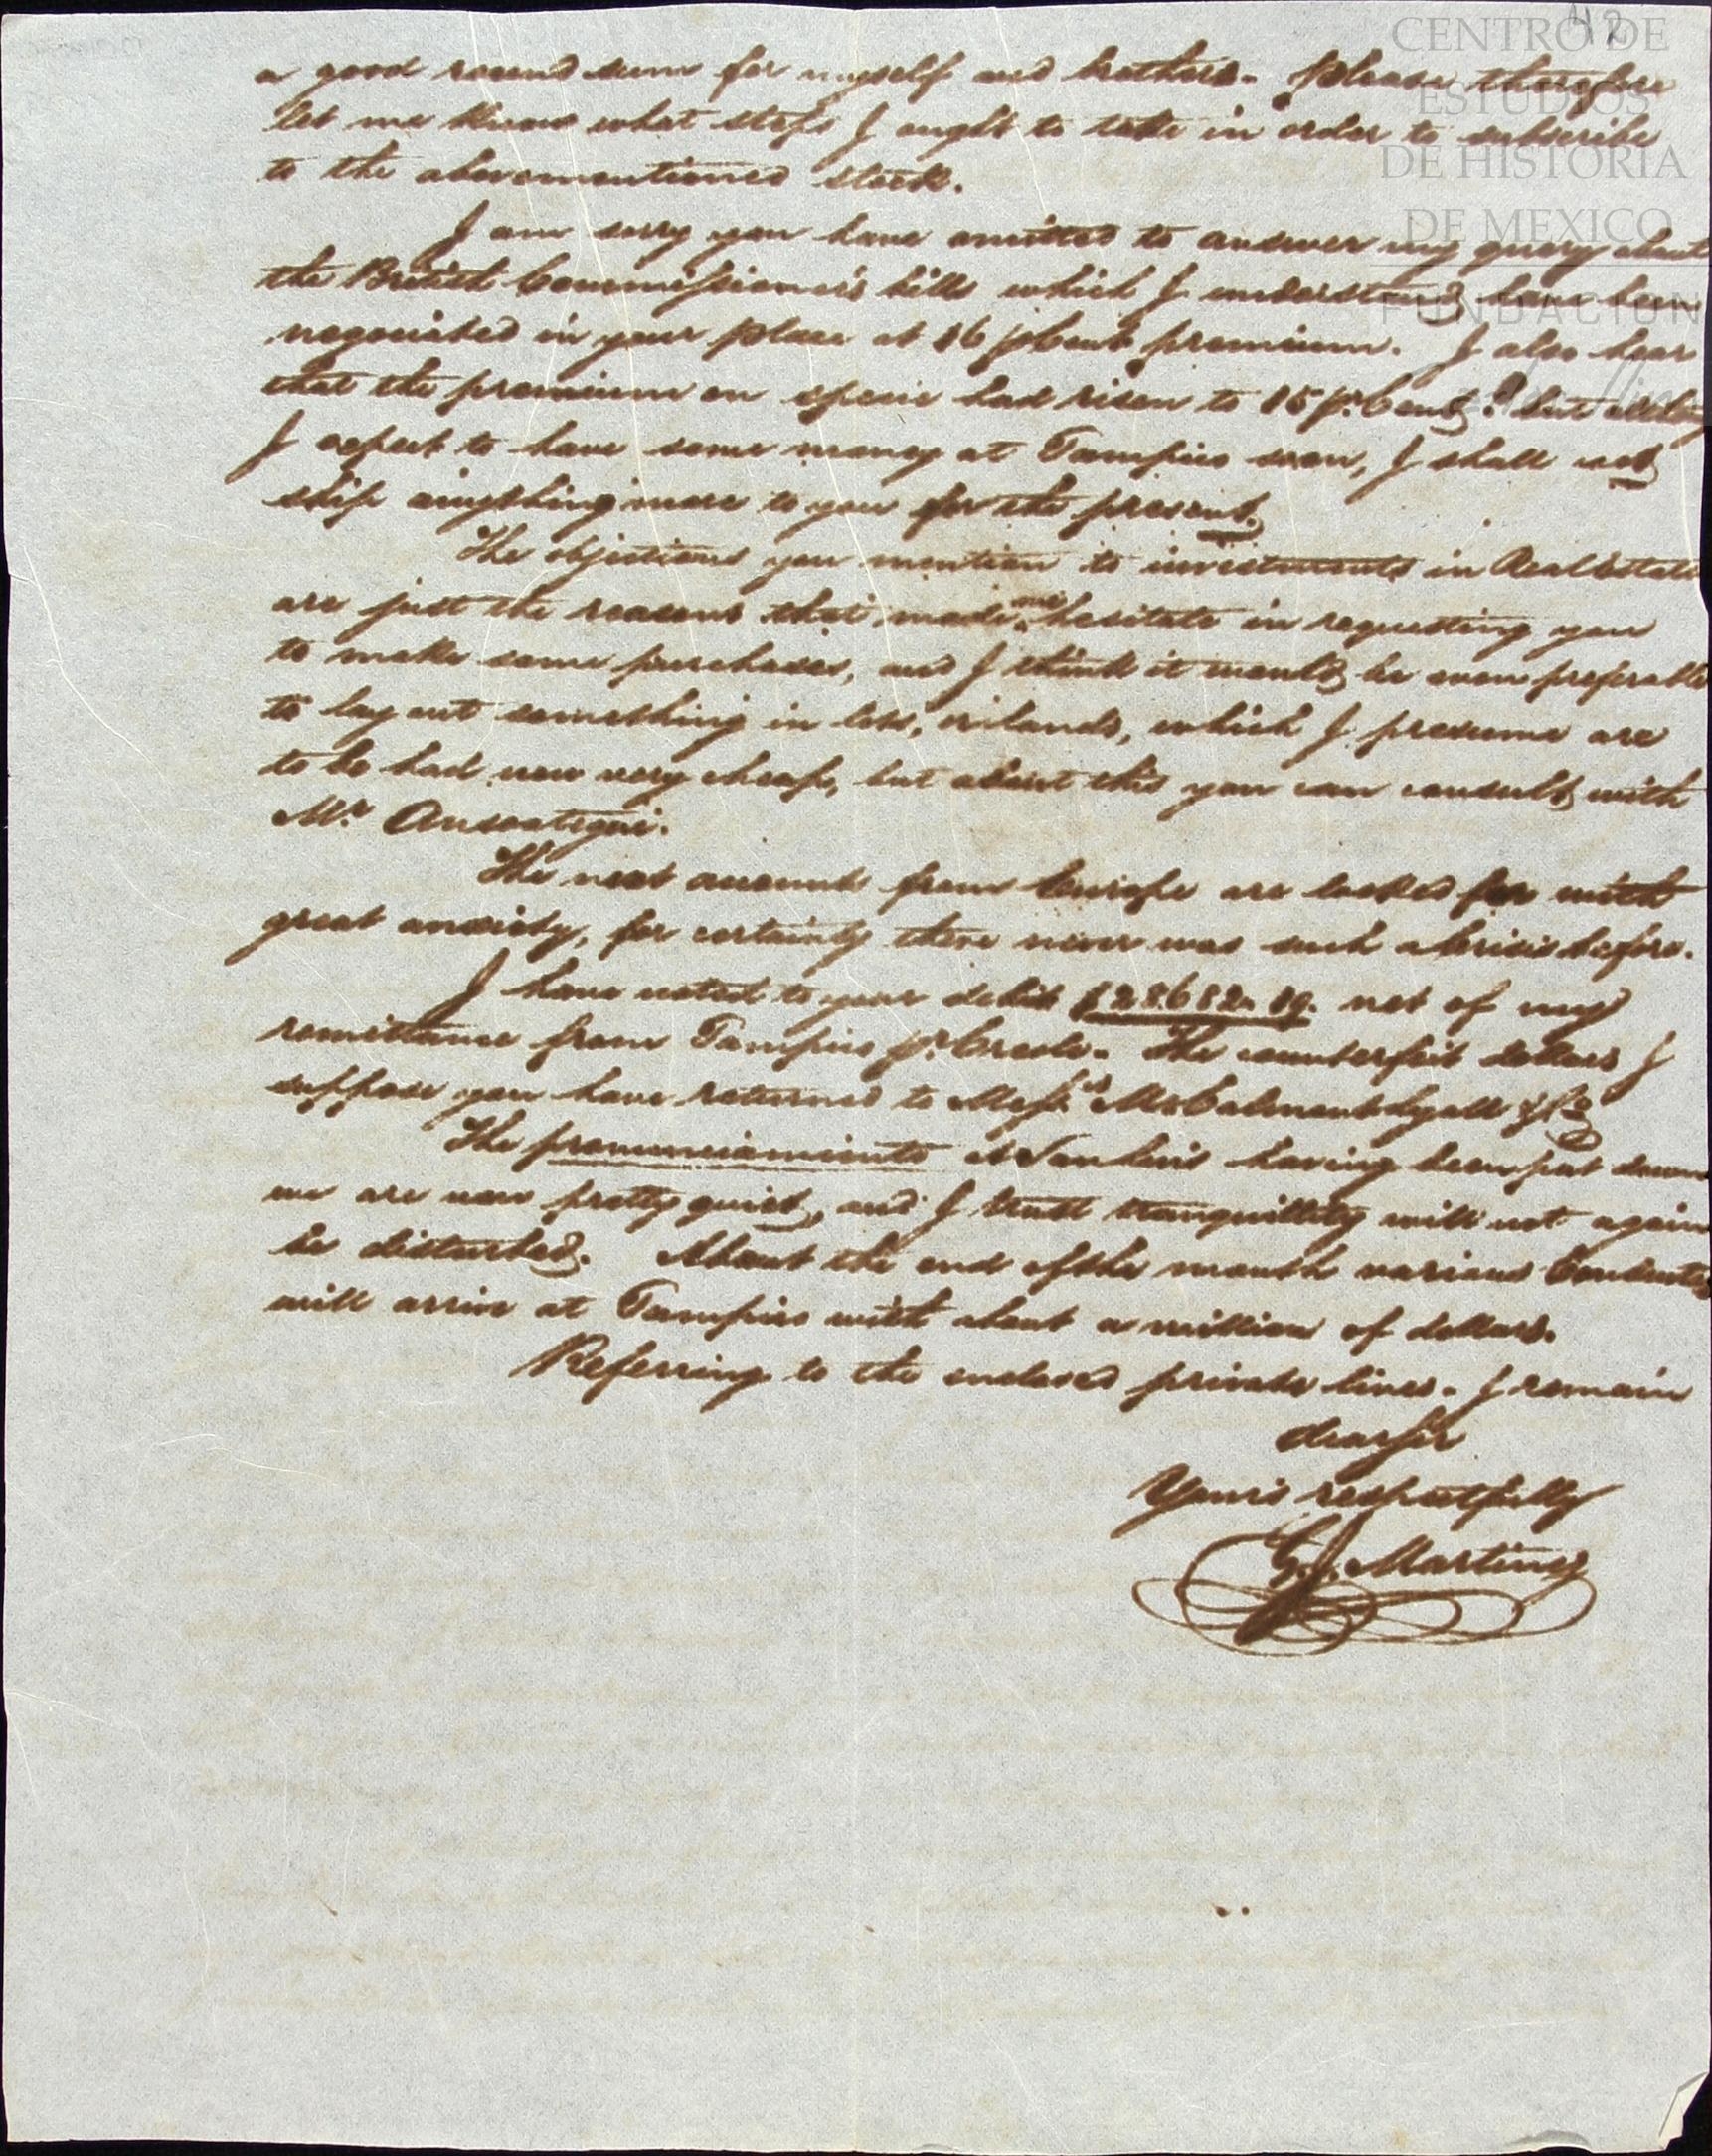 42
CENTRO DE
ESTUDIOS
DE HISTORIA
DE MEXICO
FUNDACION
a good round sum for myself and brothers. Please therefore
let me know what steps I ought to take in order to subscribe
to the abovementioned stock.
I am sorry you have omitted to answer my query about
the British Commissioner's bills which I understand have been
negociated in your place at 16 p Cent premium. I also hear
that the premium on specie had risen to 15 pr. Cent? but
I expect to have some money at Tampico soon, I shall not
ship anything more to you for the present.
The objections you mention to investments in Real Estate
are just the reasons that made me hesitate in requesting you
to make some purchases, and I think it would be even preferable
to lay out something in lots, or lands, which I presume are
to be had now very cheap, but about this you can consult with
Mr. Ansoategui.
The next accounts from Europe are looked for with
great anxiety, for certainly there never was such a Crisis before.
I have noted to your debit $28682. 19. net of my
remittance from Tampico pr. Creole. The counterfeit dollars I
suppose you have returned to Messrs. McCalmont Lyall & Co
The pronunciamiento at San Luis having been put down
we are now pretty quiet, and I trust tranquillity will not again
be disturbed. About the end of the month various Conductas
will arrive at Tampico with about a million of dollars.
Referring to the enclosed private lines. I remain
dear sir
Yours respectfully
G. J. Martinz